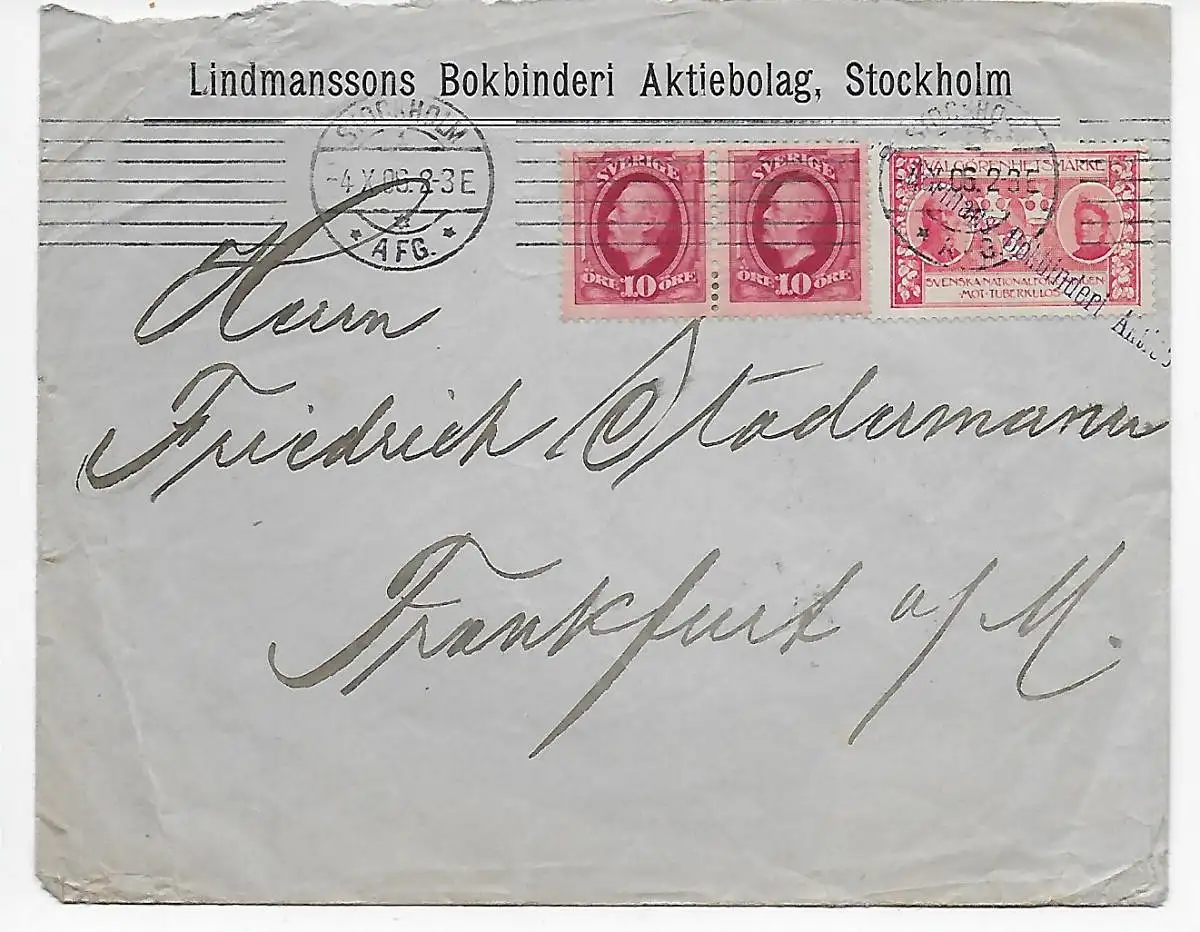 Lindmanssons Bokbinderi Aktiebolag, Stockholm
STOCKHOLM
-4.X.06.2-3E
AFG.
SVERIGE
ÖRE 10 ÖRE
SVERIGE
ÖRE 10 ÖRE
STOCKHOLM
-4.X.06.2-3E
VÄLGÖRENHETSMÄRKE
SVENSKA NATIONALFÖRENINGEN
MOT TUBERKULOS
Bokbinderi
Herrn
Friedrich Stadermann
Frankfurt a/M.